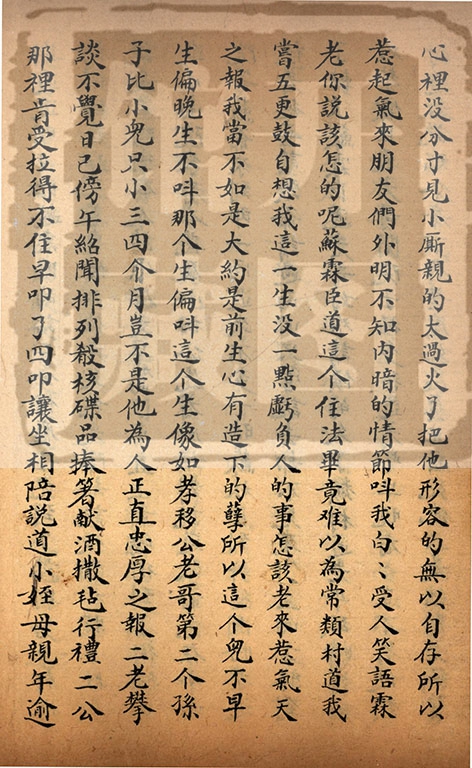 心裡没分寸見小厮親的太過火了把他形容的無以自存所以
惹起氣來朋友們外明不知内暗的情節呌我白〻受人笑語霖
老你説該怎的呢蘇霖臣道這个住法畢竟难以為常類村道我
嘗五更鼓自想我這一生没一點虧負人的事怎該老來惹氣天
之報我當不如是大約是前生心有造下的孽所以這个兒不早
生偏晚生不呌那个生偏呌這个生像如孝移公老哥第二个孫
子比小兒只小三四个月豈不是他為人正直忠厚之報二老攀
談不覺日已傍午紹聞排列殽核碟品捧箸献酒撒毡行禮二公
那裡肯受拉得不住早叩了四叩讓坐相陪説道小姪母親年逾